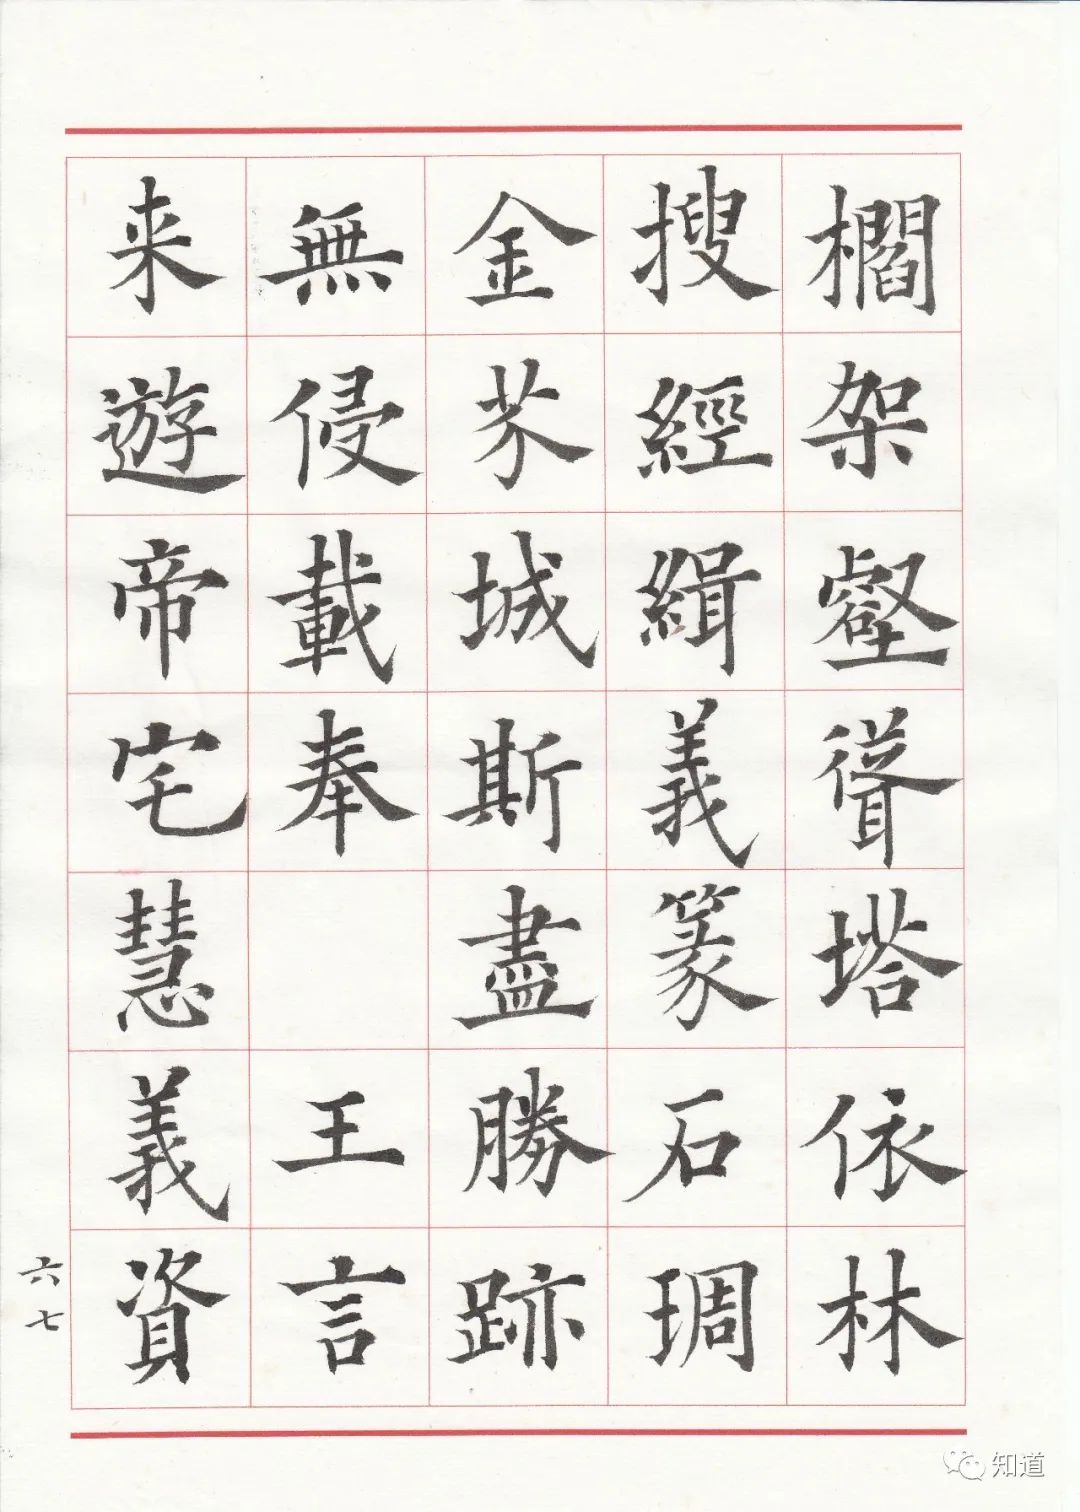 櫩架壑聳塔依林
搜經緝義篆石琱
金芥城斯盡勝跡
無侵載奉 王言
来遊帝宅慧義資
六七
知道